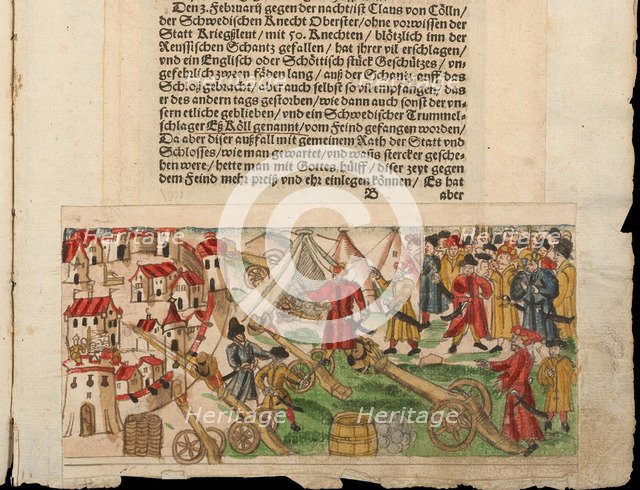 Den 3. Februarij gegen der nacht / ist Claus von Cölln /
der Schwedischen Knecht Oberster / ohne vorwissen der
Statt Kriegßleut / mit 50. Knechten / blötzlich inn der
Reussischen Schantz gefallen / hat jhrer vil erschlagen /
vnd ein Englisch oder Schöttisch stück Geschützes / vn-
gefehrlich zween faden lang / auß der Schantz auff das
Schloß gebracht / aber auch selbst so vil empfangen / das
er des andern tags gestorben / wie dann auch sonst der vn-
sern etliche geblieben / vnd ein Schwedischer Trummel-
schlager Eß Köll genannt / vom Feind gefangen worden /
Da aber diser außfall mit gemeinem Rath der Statt vnd
Schlosses / wie man gewartet / vnd wañs stercker gesche-
hen were / hette man mit Gottes hülff / diser zeyt gegen
dem Feind mehr preiß vnd ehr einlegen können / Es hat
B aber
Heritage Heritage Heritage
Heritage Heritage Heritage
Heritage Heritage Heritage